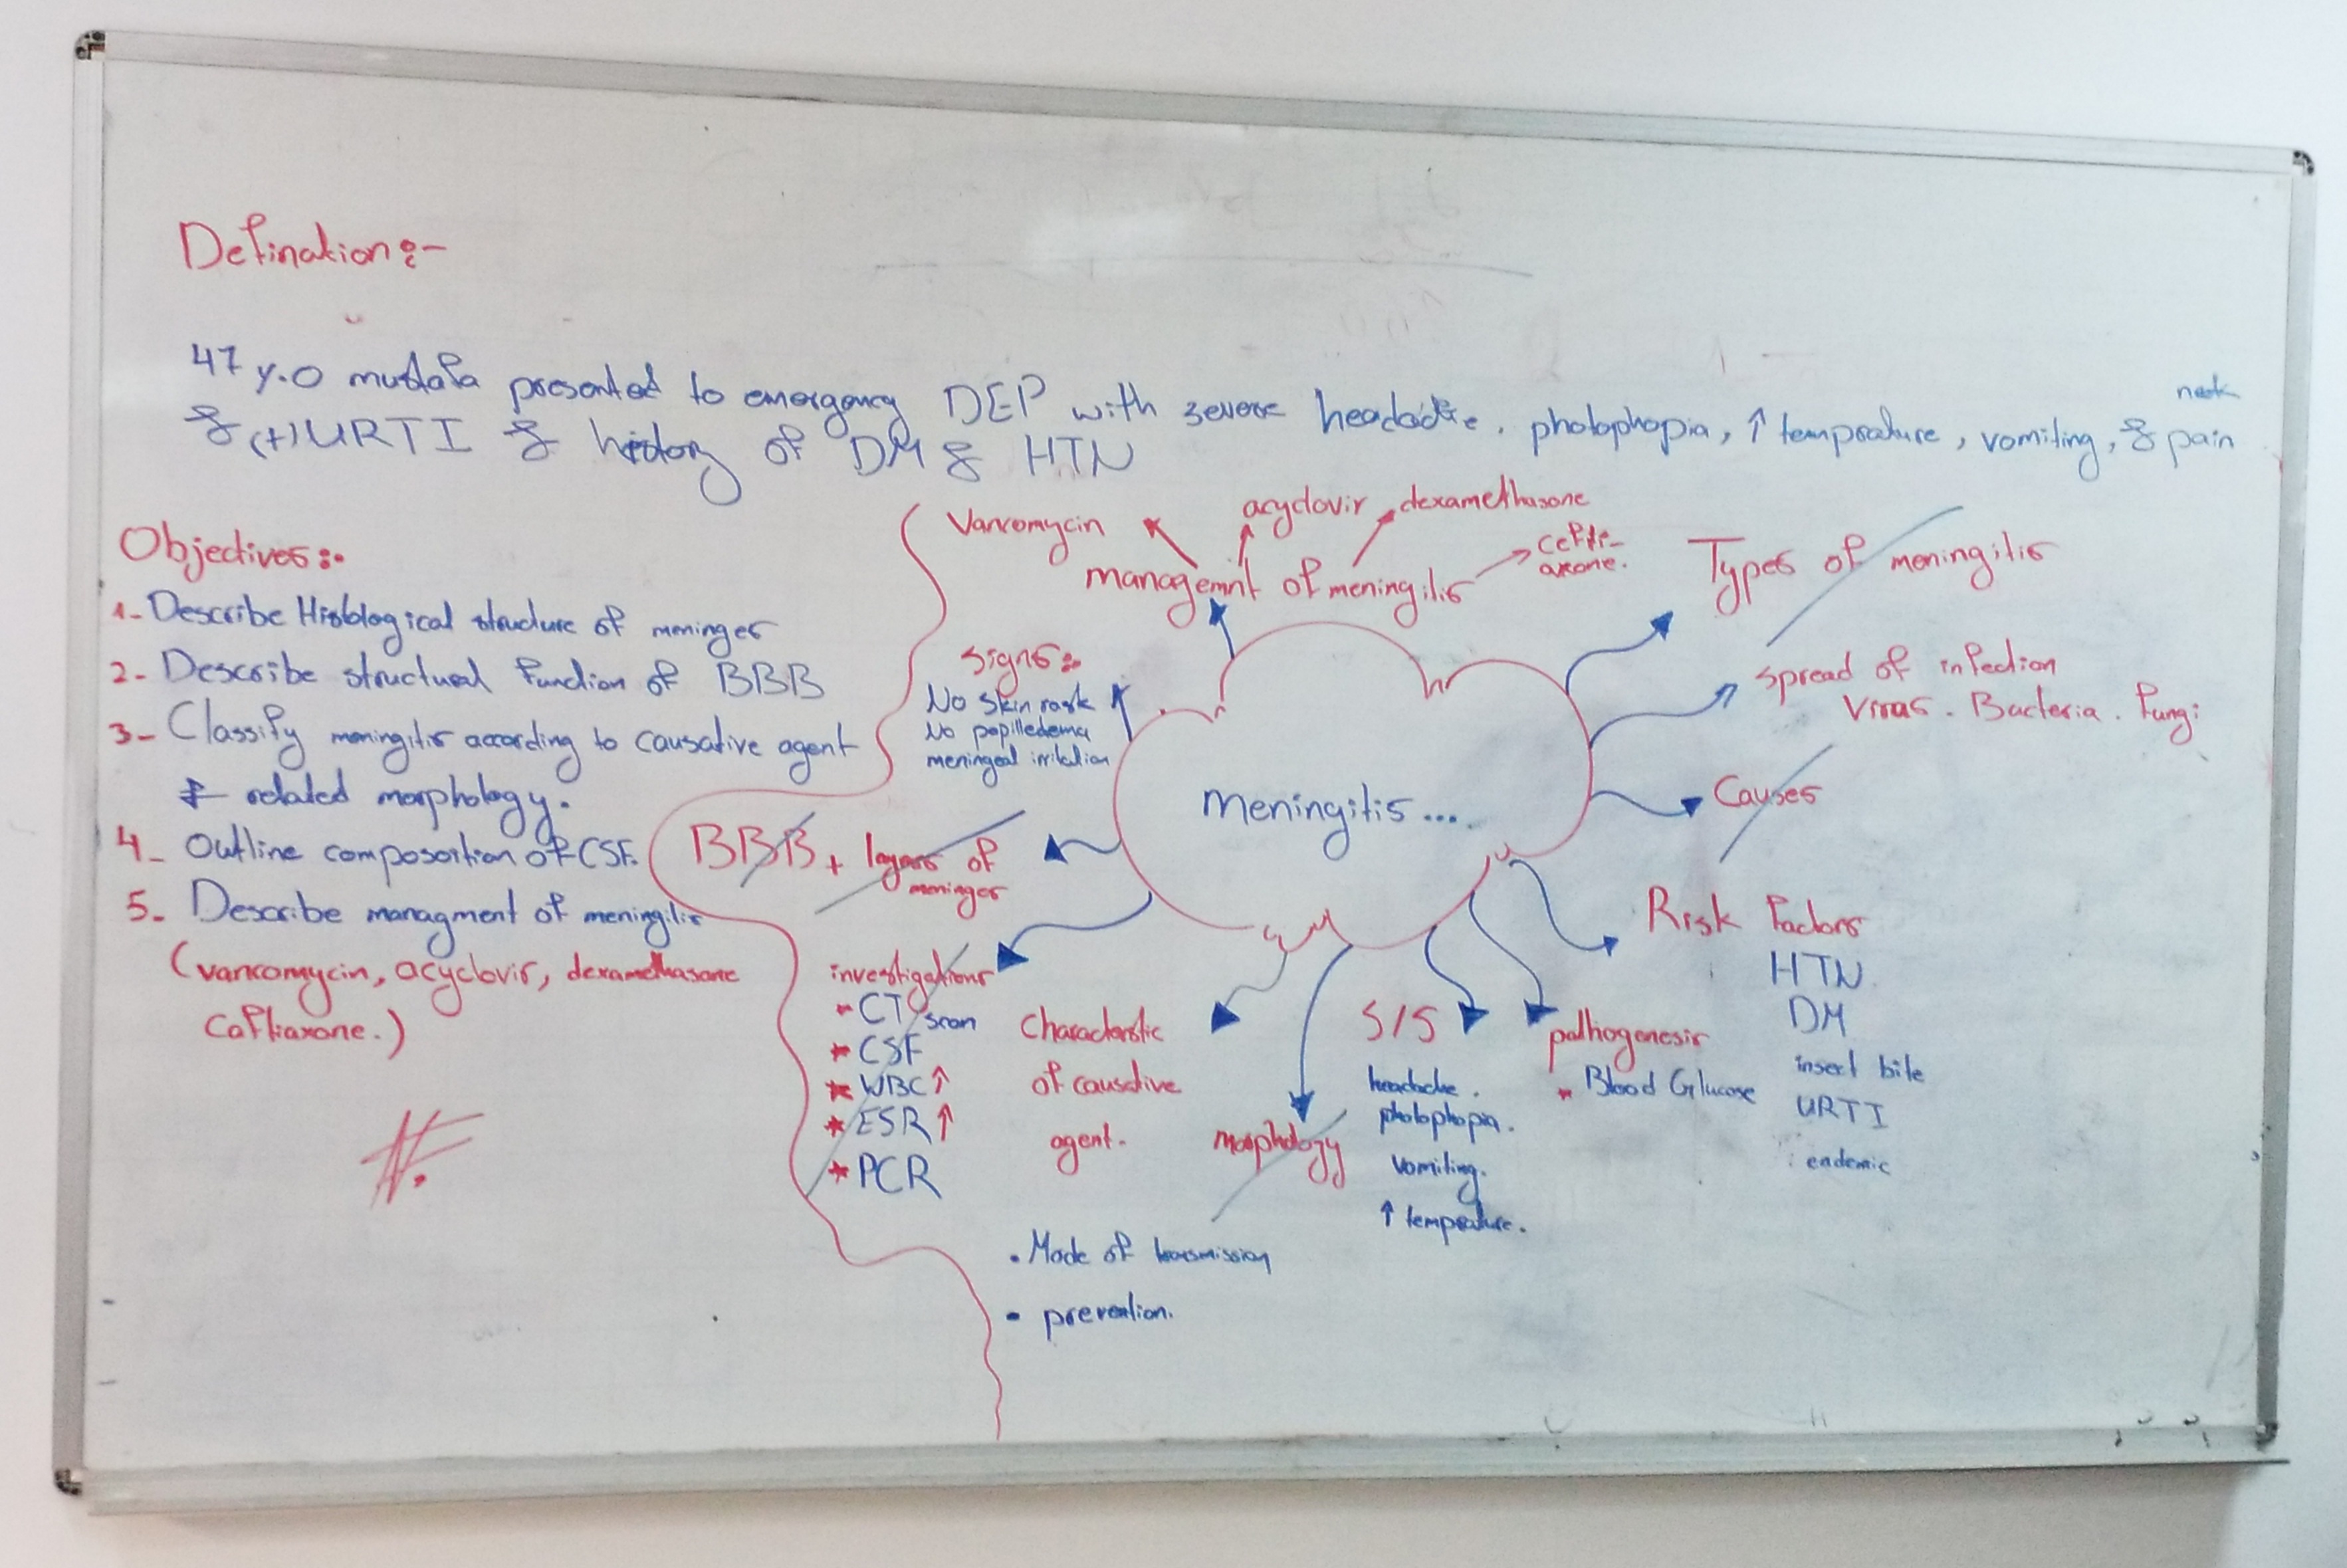 Defination:-
47 y.o mustafa presented to emergency DEP with severe headache, photophopia, ↑ temprature, vomiting, & neck pain
& (+) URTI & history of DM & HTN
Objectives:-
1- Describe Histological structure of meninges
2- Describe structural function of BBB
3- Classify meningitis according to causative agent
& related morphology.
4- Outline composoition of CSF.
5- Describe managment of meningitis
(vancomycin, acyclovir, dexamethasone
Caftiaxone.)
Vancomycin
acyclovir
dexamethasone
Ceftri-
axone.
managemnt of meningitis
Signs:-
No skin rash
No papilledema
meningeal irritation
BBB + layers of
meninges
investigations
* CT scan
* CSF
* WBC ↑
* ESR ↑
* PCR
Meningitis...
Types of meningitis
spread of infection
Virus. Bacteria. Fungi
Causes
Risk factors
HTN
DM
insect bite
URTI
endemic
pathogenesis
* Blood Glucose
S/S
headache.
photophopia.
vomiting.
↑ temprature.
morphology
Characterstic
of causative
agent.
• Mode of transmission
• prevention.